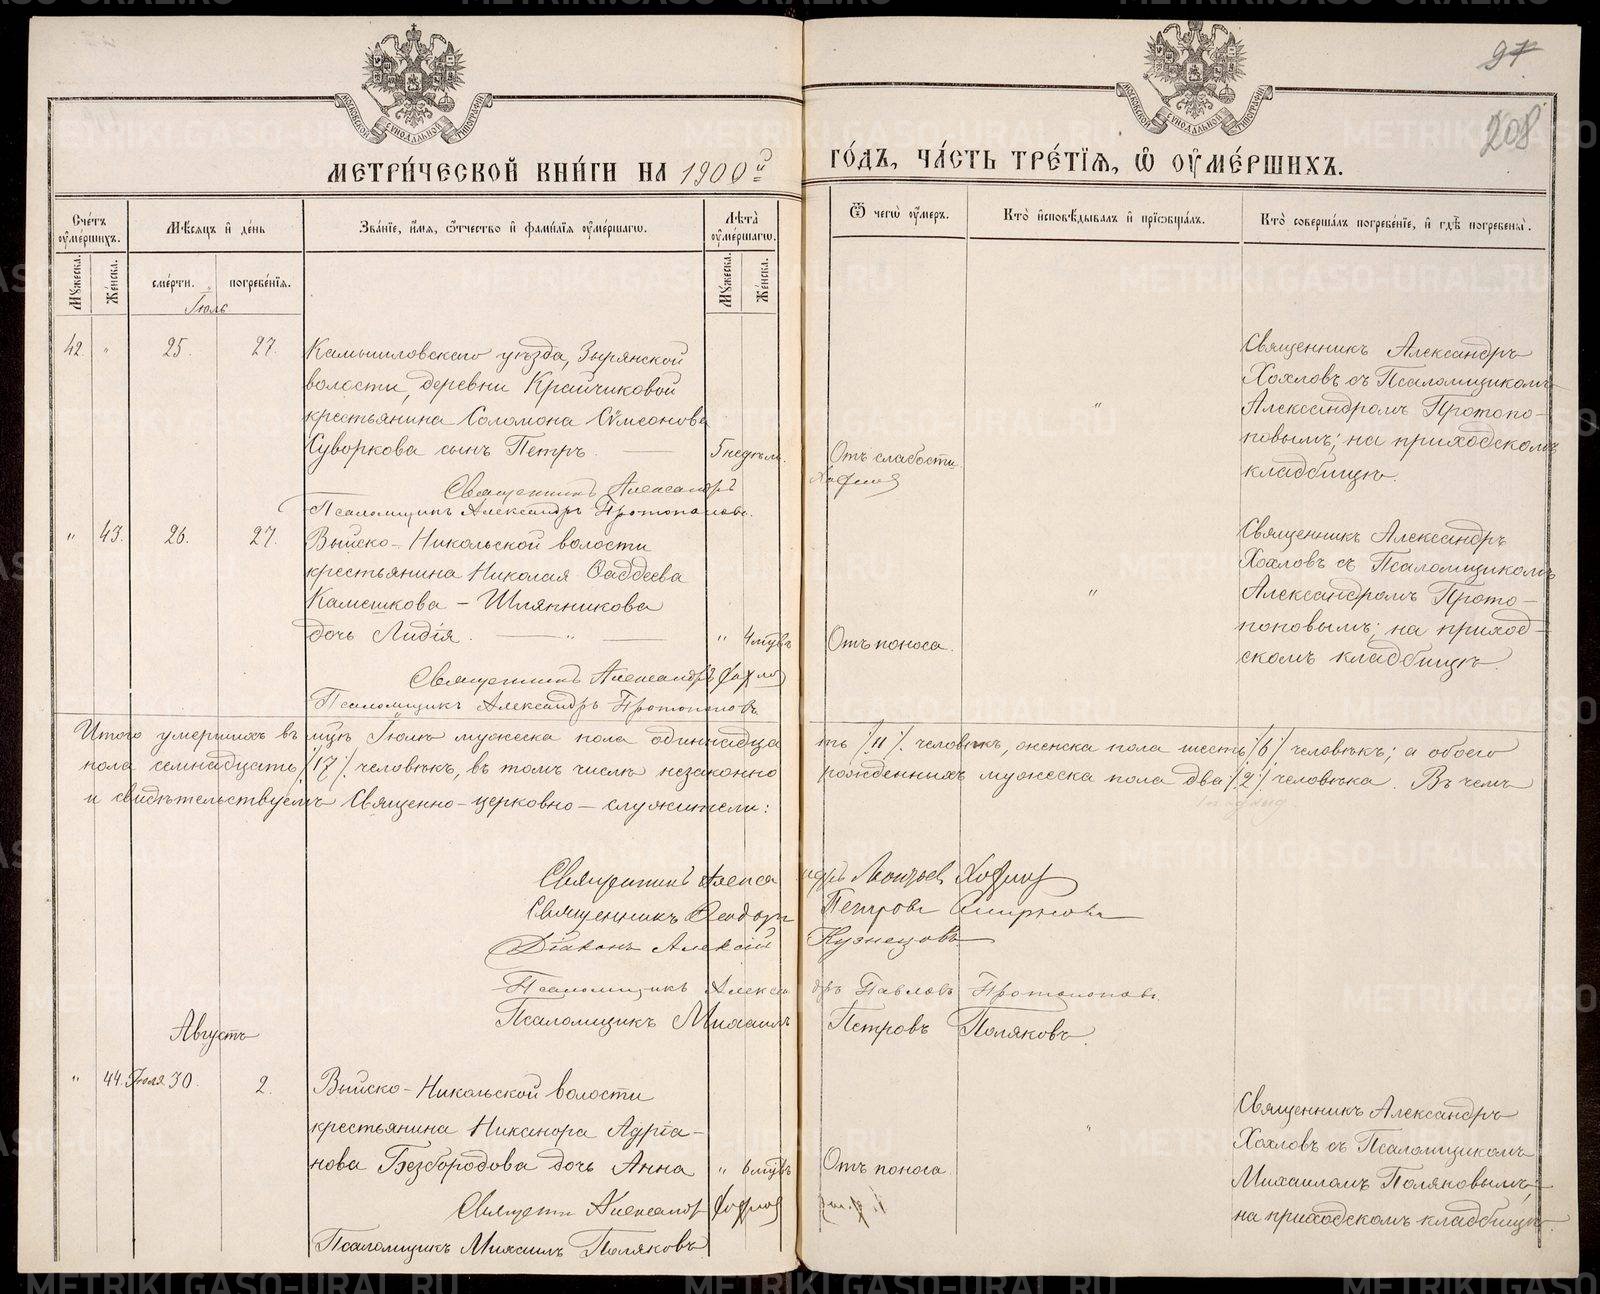 97
208
МОСКОВСКОЙ СѴНОДАЛЬНОЙ ТИПОГРАФІИ
МОСКОВСКОЙ СѴНОДАЛЬНОЙ ТИПОГРАФІИ
МЕТРИ́ЧЕСКОЙ КНИ́ГИ НА 1900й ГО́ДЪ, ЧА́СТЬ ТРЕ́ТІѦ, Ѡ҆ ОУ҆МЕ́РШИХЪ.
Сче́тъ оу҆ме́ршихъ.
Мѣ́сѧцъ и҆ де́нь
Зва́нїе, и҆́мѧ, ѻ҆́тчество и҆ фами́лїѧ оу҆ме́ршагѡ.
Лѣ́та оу҆ме́ршагѡ.
Ѿ чегѡ̀ оу҆́меръ.
Кто̀ и҆сповѣ́дывалъ и҆ прїѡбща́лъ.
Кто̀ соверша́лъ погребе́нїе, и҆ гдѣ̀ погребены̀.
Мꙋ́жеска. Же́нска. сме́рти. погребе́нїѧ. Мꙋ́жеска. Же́нска.
Іюль
42. " 25. 27. Камышловскаго уѣзда, Зырянской
волости, деревни Крайчиковой
крестьянина Соломона Сѵмеонова
Суворкова сынъ Петръ. — 5 недѣль. Отъ слабости. "
Священникъ Александръ
Хохловъ съ Псаломщикомъ
Александромъ Протопо-
повымъ; на приходскомъ
кладбищѣ.
Священникъ Александръ Хохлов
Псаломщикъ Александръ Протопоповъ.
" 43. 26. 27. Выйско-Никольской волости
крестьянина Николая Ѳаддеева
Камешкова - Шляпникова
дочь Лидія. — " — " 4 мцвъ Отъ поноса. "
Священникъ Александръ
Хохловъ съ Псаломщикомъ
Александромъ Прото-
поповымъ; на приход-
скомъ кладбищѣ.
Священникъ Александръ Хохлов
Псаломщикъ Александръ Протопоповъ
Итого умершихъ въ мцѣ Іюлѣ мужеска пола одиннадцать /11/ человѣкъ, женска пола шесть /6/ человѣкъ; а обоего
пола семнадцать /17/ человѣкъ, въ томъ числѣ незаконнорожденныхъ мужеска пола два /2/ человѣка. Въ чемъ
и свидѣтельствуемъ Священно-церковно-служители:
Священникъ Александръ Леонтьев Хохлов
Священникъ Ѳеодоръ Петровъ Смирновъ
Діаконъ Алексій Кузнецовъ
Псаломщикъ Александръ Павловъ Протопоповъ.
Псаломщикъ Михаилъ Петровъ Поляковъ.
Августъ
" 44. Іюля 30. 2. Выйско-Никольской волости
крестьянина Никанора Адріа-
нова Безбородова дочь Анна " 6 мцвъ Отъ поноса. "
Священникъ Александръ
Хохловъ съ Псаломщикомъ
Михаиломъ Поляковымъ;
на приходскомъ кладбищѣ.
Псаломщикъ Михаилъ Поляковъ.
METRIKI.GASO-URAL.RU